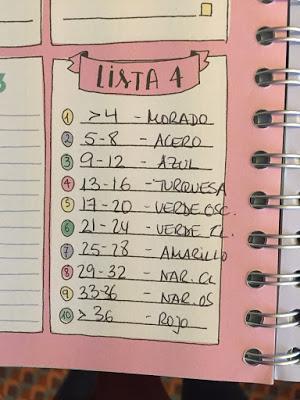 LISTA 4
1 >4 - MORADO
2 5-8 - ACERO
3 9-12 - AZUL
4 13-16 - TURQUESA
5 17-20 - VERDE OSC.
6 21-24 - VERDE CL.
7 25-28 - AMARILLO
8 29-32 - NAR. CL
9 33-36 - NAR. OS
10 > 36 - ROJO
3